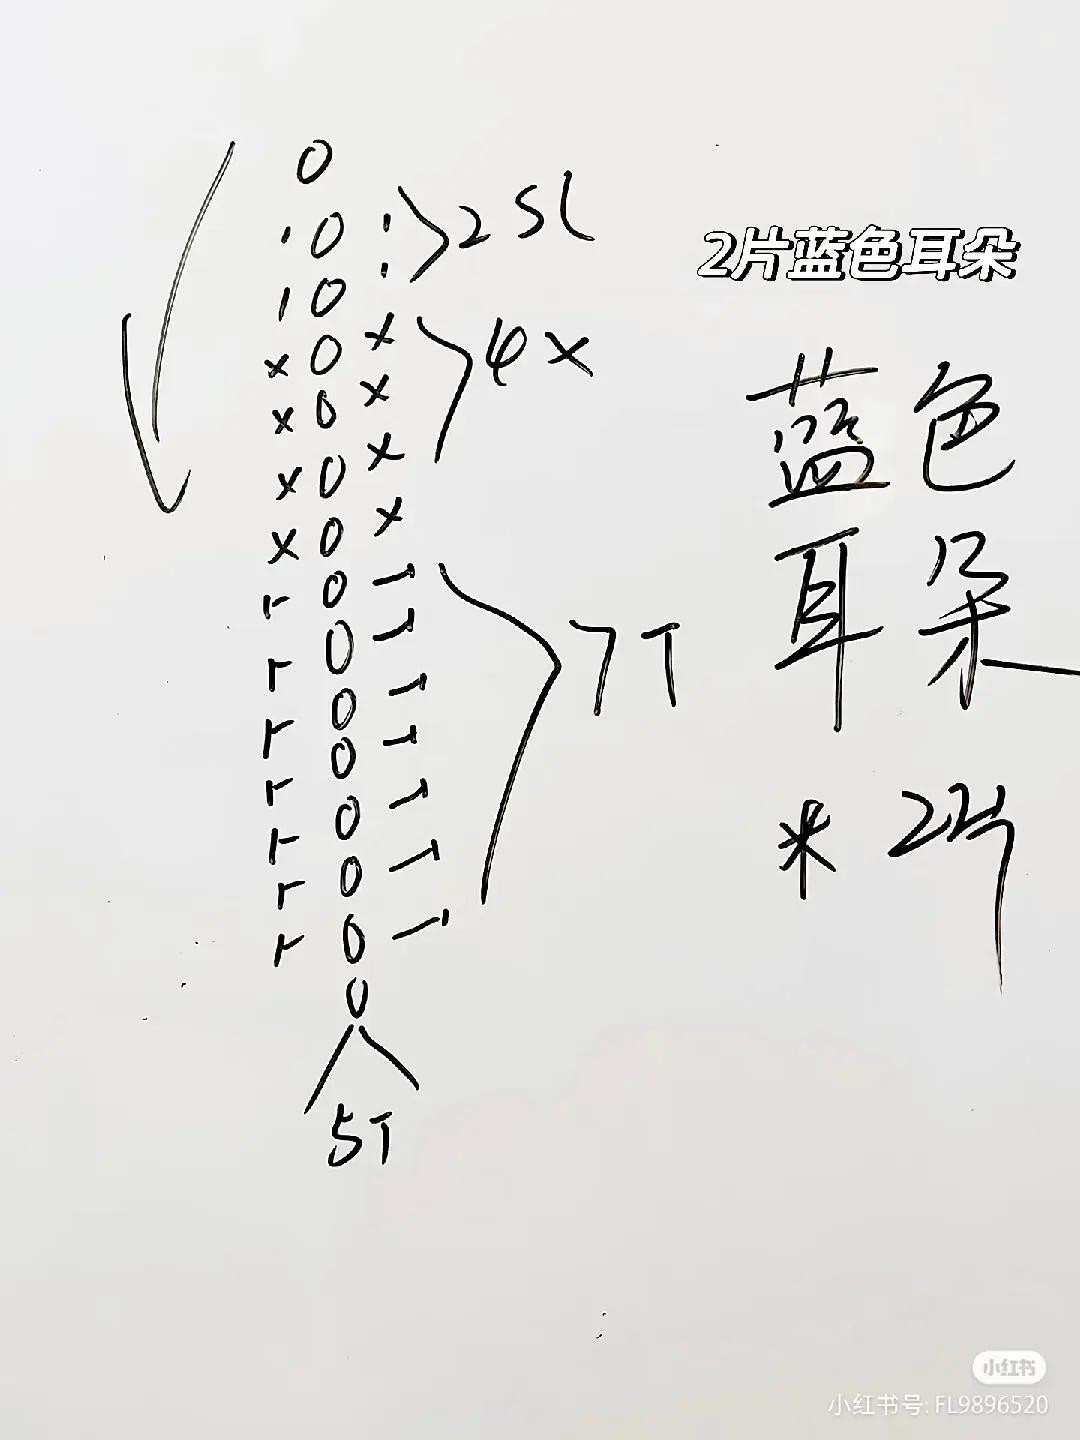 0
ı 0 ı
ı 0 ı
2 SL
x 0 x
x 0 x
x 0 x
x 0 x
4 X
T 0 T
T 0 T
T 0 T
T 0 T
T 0 T
T 0 T
T 0 T
7T
0
5T
2片蓝色耳朵
蓝色
耳朵
* 2片
小红书
小红书号: FL9896520